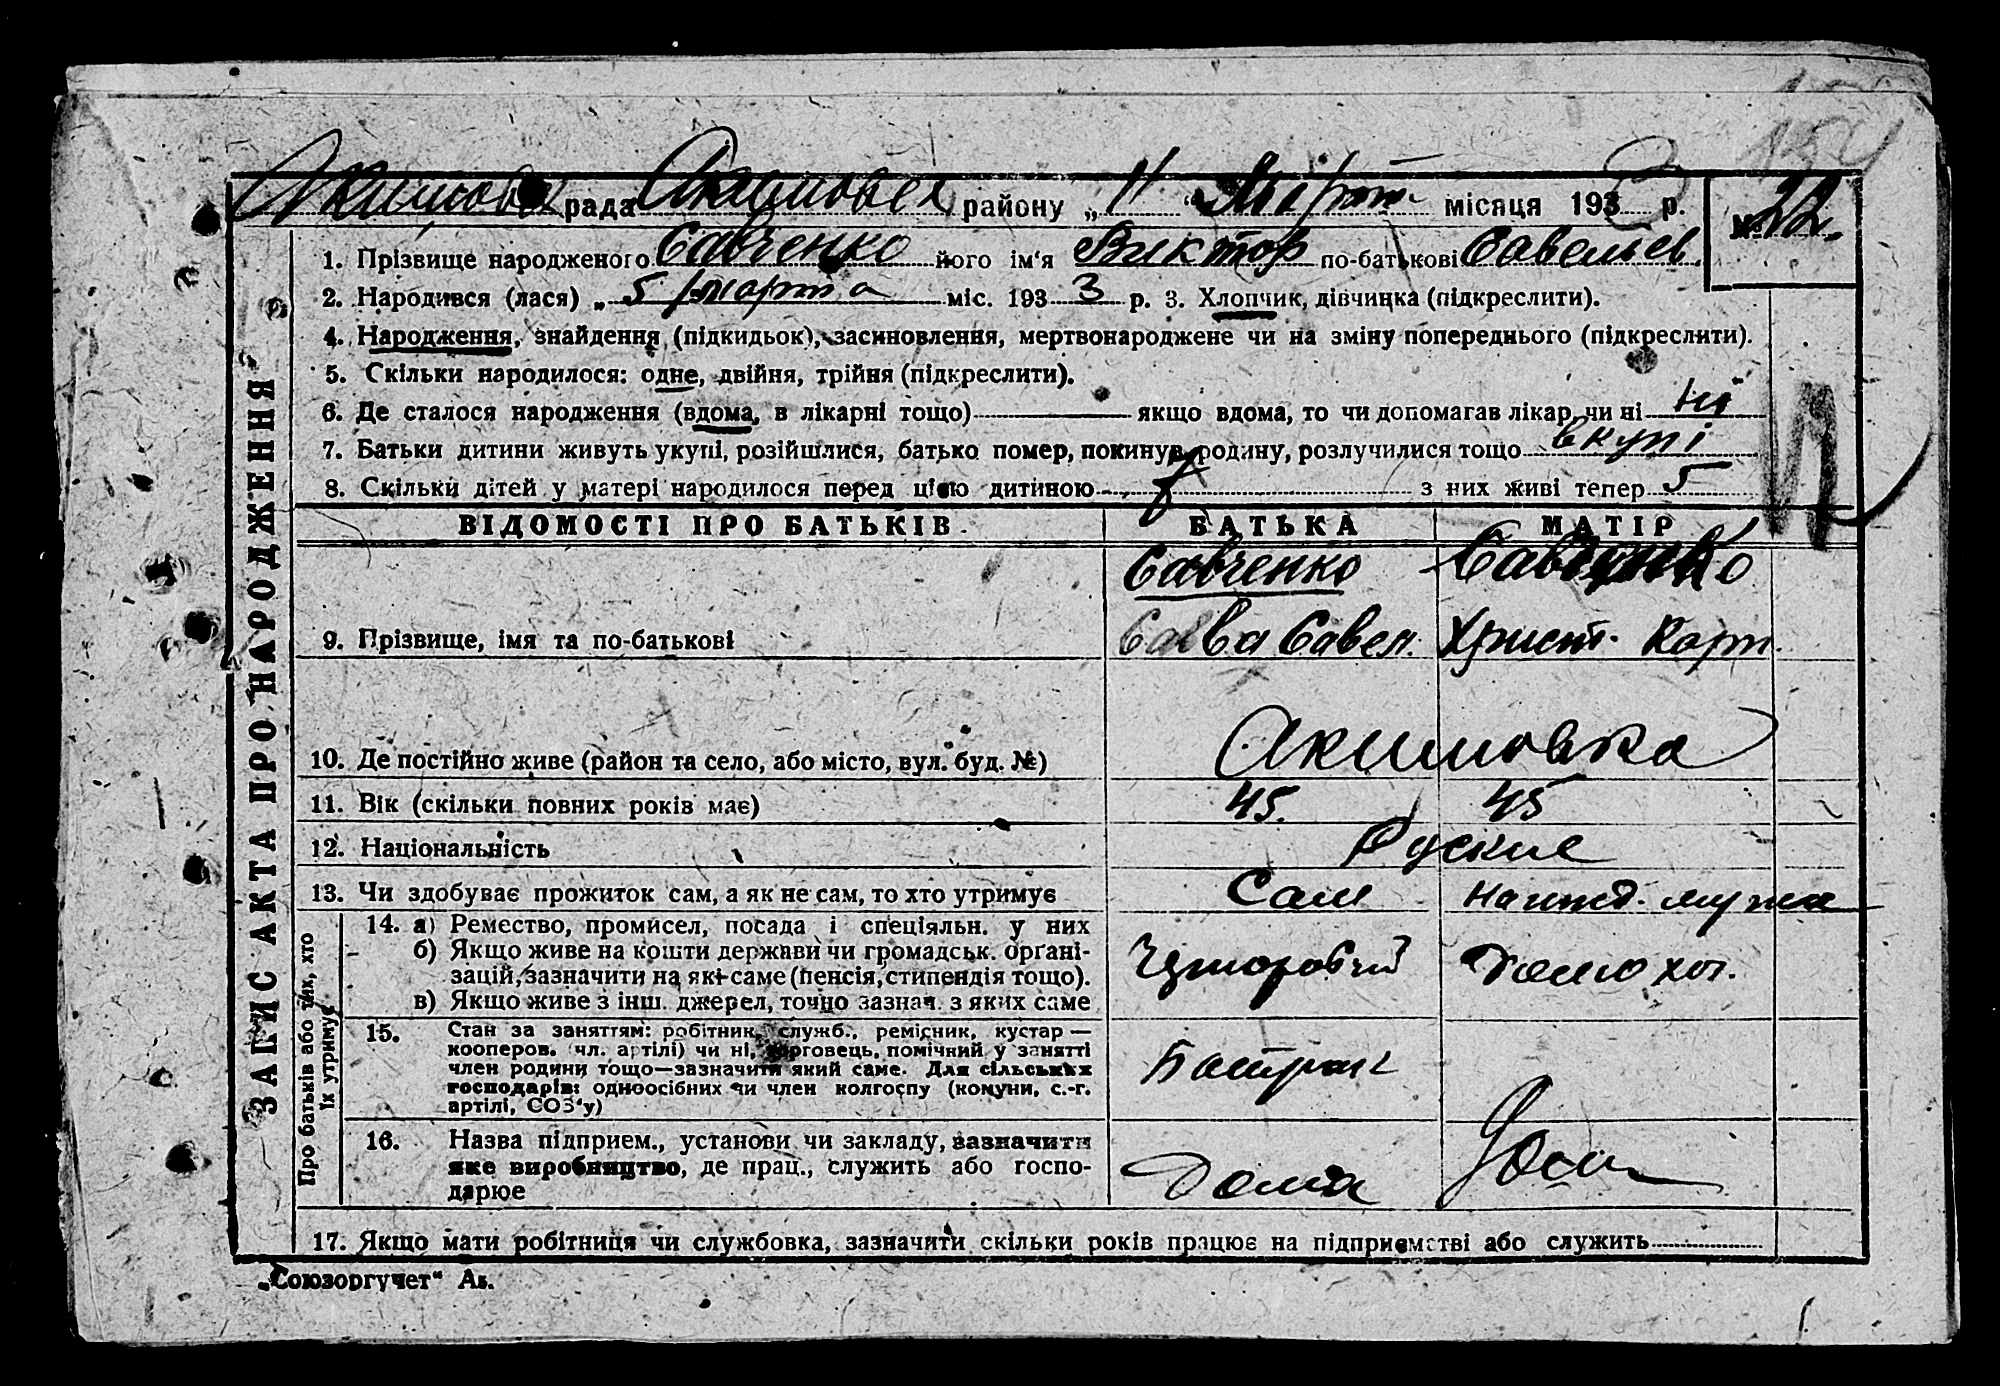 Акимовск рада Акимовск району „11“ Март місяця 1933 р. № 22.
1. Прізвище народженого Савченко його ім'я Виктор по-батькові Савельев.
2. Народився (лася) „5“ марта міс. 1933 р. 3. Хлопчик, дівчинка (підкреслити).
4. Народження, знайдення (підкидьок), засиновлення, мертвонароджене чи на зміну попереднього (підкреслити).
5. Скільки народилося: одне, двійня, трійня (підкреслити).
6. Де сталося народження (вдома, в лікарні тощо) якщо вдома, то чи допомагав лікар, чи ні ні
7. Батьки дитини живуть укупі, розійшлися, батько помер, покинув родину, розлучилися тощо вкупі
8. Скільки дітей у матері народилося перед цією дитиною з них живі тепер 5
ЗАПИС АКТА ПРО НАРОДЖЕННЯ
ВІДОМОСТІ ПРО БАТЬКІВ БАТЬКА МАТІР
Савченко Савченко
9. Прізвище, імя та по-батькові Савва Савел. Христ. Карп.
10. Де постійно живе (район та село, або місто, вул. буд. №) Акимовка
11. Вік (скільки повних років має) 45. 45
12. Національність Руские
13. Чи здобуває прожиток сам, а як не сам, то хто утримує Сам на ижд. мужа
Про батьків або тих, хто
їх утримує
14. а) Ремество, промисел, посада і спеціяльн. у них
б) Якщо живе на кошти держави чи громадськ. орґані-
зацій, зазначити на які саме (пенсія, стипендія тощо).
в) Якщо живе з інш. джерел, точно зазнач. з яких саме
Домохоз.
15. Стан за заняттям: робітник, служб., ремісник, кустар —
кооперов. (чл. артілі) чи ні, торговець, помічний у занятті
член родини тощо—зазначити який саме. Для сільських
господарів: одноосібних чи член колгоспу (комуни, с.-г.
артілі, СОЗ'у)
Батрак
16. Назва підприєм., установи чи закладу, зазначити
яке виробництво, де прац., служить або госпо-
дарює
Дома
17. Якщо мати робітниця чи службовка, зазначити скільки років працює на підприємстві або служить
„Союзоргучет“ Ак.